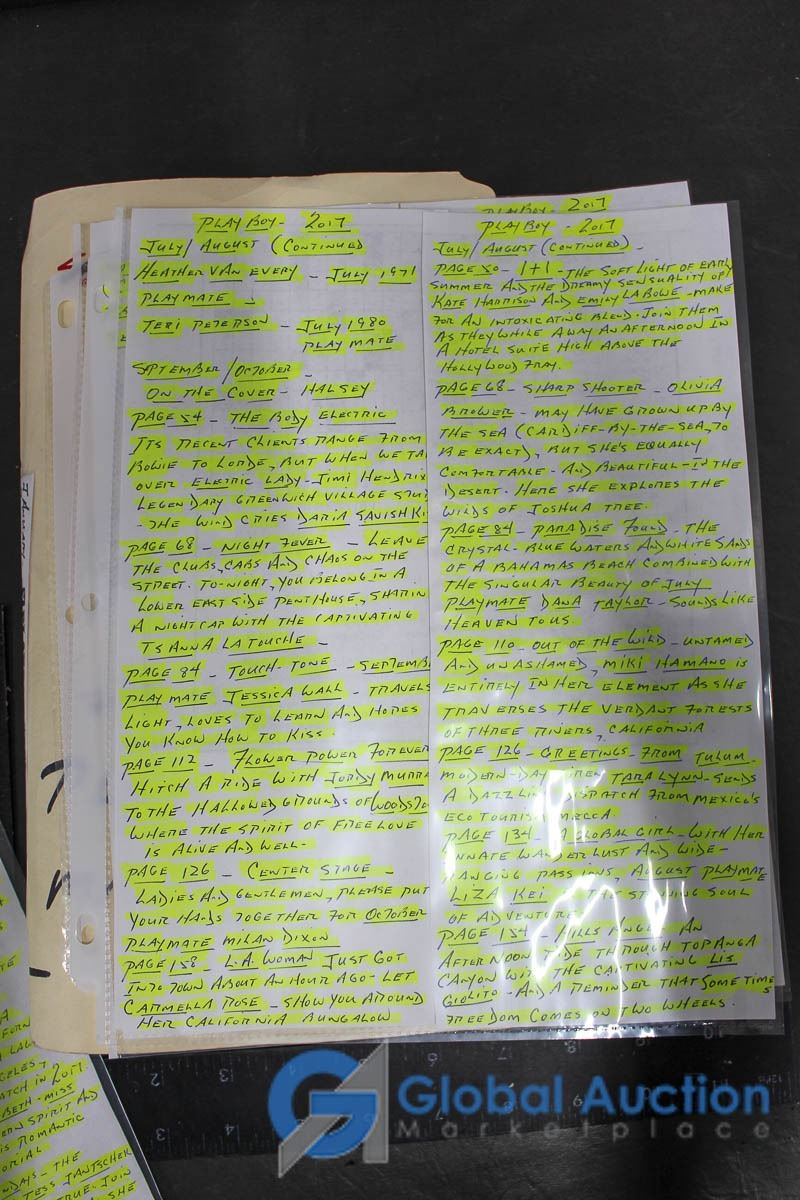 PLAYBOY- 2017
JULY/ AUGUST (CONTINUED
HEATHER VAN EVERY - JULY 1971
PLAYMATE -
TERI PETERSON - JULY 1980
PLAYMATE
SEPTEMBER/OCTOBER -
ON THE COVER - HALSEY
PAGE 54 - THE BODY ELECTRIC
ITS RECENT CLIENTS RANGE FROM
BOWIE TO LORDE, BUT WHEN WE TA
OVER ELECTRIC LADY-JIMI HENDRIX
LEGENDARY GREENWICH VILLAGE STUD
-THE WIND CRIES DARIA SAVISHKI
PAGE 68 - NIGHT FEVER - LEAVE
THE CLUBS, CABS AND CHAOS ON THE
STREET. TO-NIGHT, YOU BELONG IN A
LOWER EAST SIDE PENTHOUSE, SHARIN
A NIGHTCAP WITH THE CAPTIVATING
TSANNA LATOUCHE -
PAGE 84 - TOUCH-TONE - SEPTEMB
PLAYMATE JESSICA WALL - TRAVELS
LIGHT, LOVES TO LEARN AND HOPES
YOU KNOW HOW TO KISS.
PAGE 112 - FLOWER POWER FOREVER
HITCH A RIDE WITH JORDY MURRA
TO THE HALLOWED GROUNDS OF WOODSTO
WHERE THE SPIRIT OF FREE LOVE
IS ALIVE AND WELL-
PAGE 126 - CENTER STAGE -
LADIES AND GENTLEMEN, PLEASE PUT
YOUR HANDS TOGETHER FOR OCTOBER
PLAYMATE MILAN DIXON
PAGE 158 L.A. WOMAN JUST GOT
INTO TOWN ABOUT AN HOUR AGO- LET
CARMELLA ROSE - SHOW YOU AROUND
HER CALIFORNIA BUNGALOW
PLAYBOY- 2017
PLAYBOY - 2017
JULY/ AUGUST (CONTINUED) -
PAGE 50 - 1+1 - THE SOFT LIGHT OF EARLY
SUMMER AND THE DREAMY SENSUALITY OF
KATE HARRISON AND EMILY LABOWE - MAKE
FOR AN INTOXICATING BLEND. JOIN THEM
AS THEY WHILE AWAY AN AFTERNOON IN
A HOTEL SUITE HIGH ABOVE THE
HOLLYWOOD FRAY.
PAGE 68 - SHARP SHOOTER - OLIVIA
BROWER - MAY HAVE GROWN UP BY
THE SEA (CARDIFF-BY-THE-SEA, TO
BE EXACT), BUT SHE'S EQUALLY
COMFORTABLE - AND BEAUTIFUL - IN THE
DESERT. HERE SHE EXPLORES THE
WILDS OF JOSHUA TREE.
PAGE 84 - PARADISE FOUND - THE
CRYSTAL-BLUE WATERS AND WHITE SANDS
OF A BAHAMAS BEACH COMBINED WITH
THE SINGULAR BEAUTY OF JULY
PLAYMATE DANA TAYLOR - SOUNDS LIKE
HEAVEN TO US.
PAGE 110 - OUT OF THE WILD - UNTAMED
AND UNASHAMED, MIKI HAMANO IS
ENTIRELY IN HER ELEMENT AS SHE
TRAVERSES THE VERDANT FORESTS
OF THREE RIVERS, CALIFORNIA
PAGE 126 - GREETINGS - FROM TULUM
MODERN-DAY SIREN TARA LYNN - SENDS
A DAZZLING DISPATCH FROM MEXICO'S
ECO TOURISM MECCA
PAGE 134 - A GLOBAL GIRL - WITH HER
INNATE WANDER LUST AND WIDE-
RANGING PASSIONS, AUGUST PLAYMATE
LIZA KEI IS THE STRIKING SOUL
OF ADVENTURE
PAGE 154 - HILLS ANGEL AN
AFTERNOON RIDE THROUGH TOPANGA
CANYON WITH THE CAPTIVATING LIS
GIOLITO - AND A REMINDER THAT SOMETIMES
FREEDOM COMES ON TWO WHEELS.
ATCH IN 2017
BETH - MISS
ERN SPIRIT AND
IS ROMANTIC
ORIAL
NDAYS - THE
TESS JANTSCHEK
TRUE. JOIN
SHE
2 3 4 5 6 10
Global Auction
Marketplace